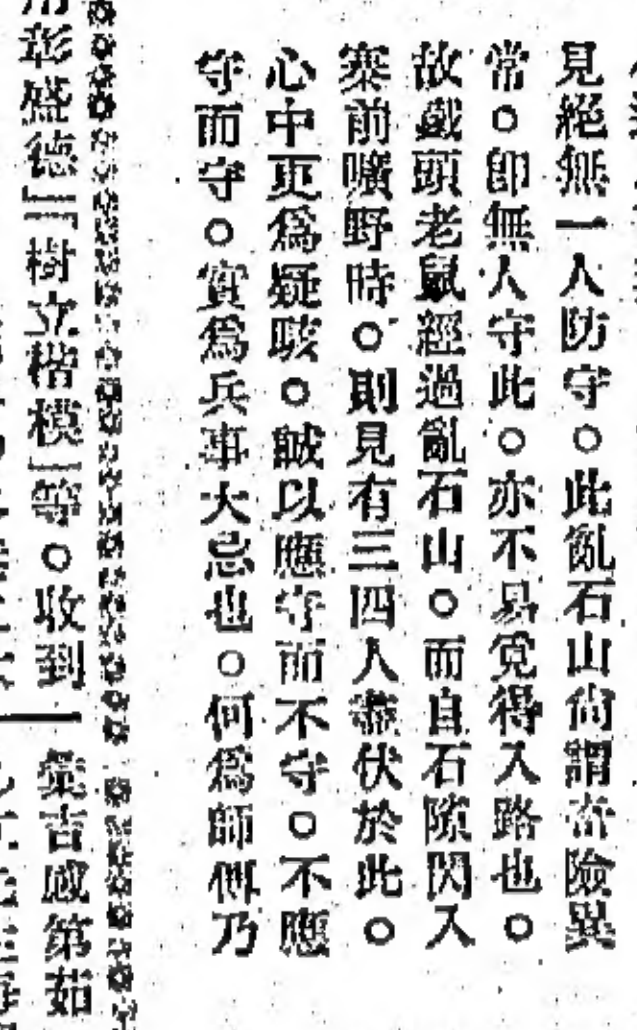 見絕無一人防守○此亂石山尚謂奇險異
常○即無人守此○亦不易覓得入路也○
故戲頭老鼠經過亂石山○而自石隙閃入
寨前曠野時○則見有三四人潛伏於此○
心中更爲疑駭○誠以應守而不守○不應
守而守○實爲兵事大忌也○何爲師傅乃
彰盛德』『樹立楷模』等○收到 彙吉咸第茹